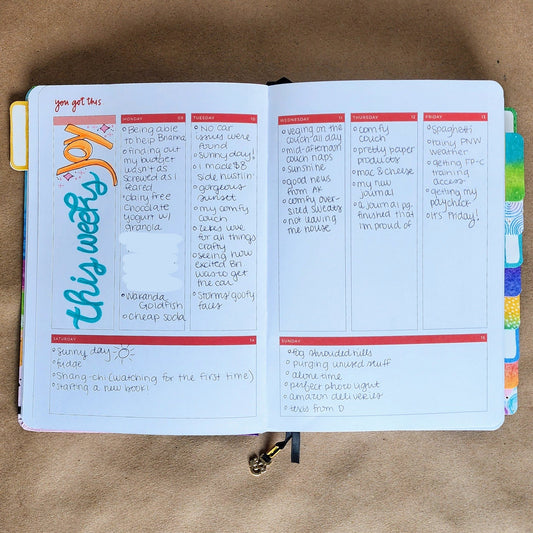 you got this
this week's
Joy
MONDAY 09
Being able
to help Brianna
finding out
my budget
wasn't as
screwed as I
feared
dairy free
chocolate
yogurt w/
granola
Wakanda
Goldfish
cheap soda
TUESDAY 10
NO car
issues were
found
Sunny day!
I made $8
side hustlin'
gorgeous
sunset
my comfy
couch
Leke's love
for all things
crafty
seeing how
excited Bri
was to get
the car
Storm's goofy
faces
WEDNESDAY 11
veging on the
couch all day
mid-afternoon
couch naps
sunshine
good news
from
comfy over-
sized sweats
not leaving
the house
THURSDAY 12
comfy
couch
pretty paper
products
mac & cheese
my new
journal
a journal pg.
finished that
I'm proud of
FRIDAY 13
Spaghetti
rainy PNW
weather
getting FP-C
training
access
getting my
paycheck
it's Friday!
SATURDAY 14
sunny day
fudge
Shang-chi (watching for the first time)
starting a new book!
SUNDAY 15
fog shrouded hills
purging unused stuff
alone time
perfect photo light
amazon deliveries
texts from D